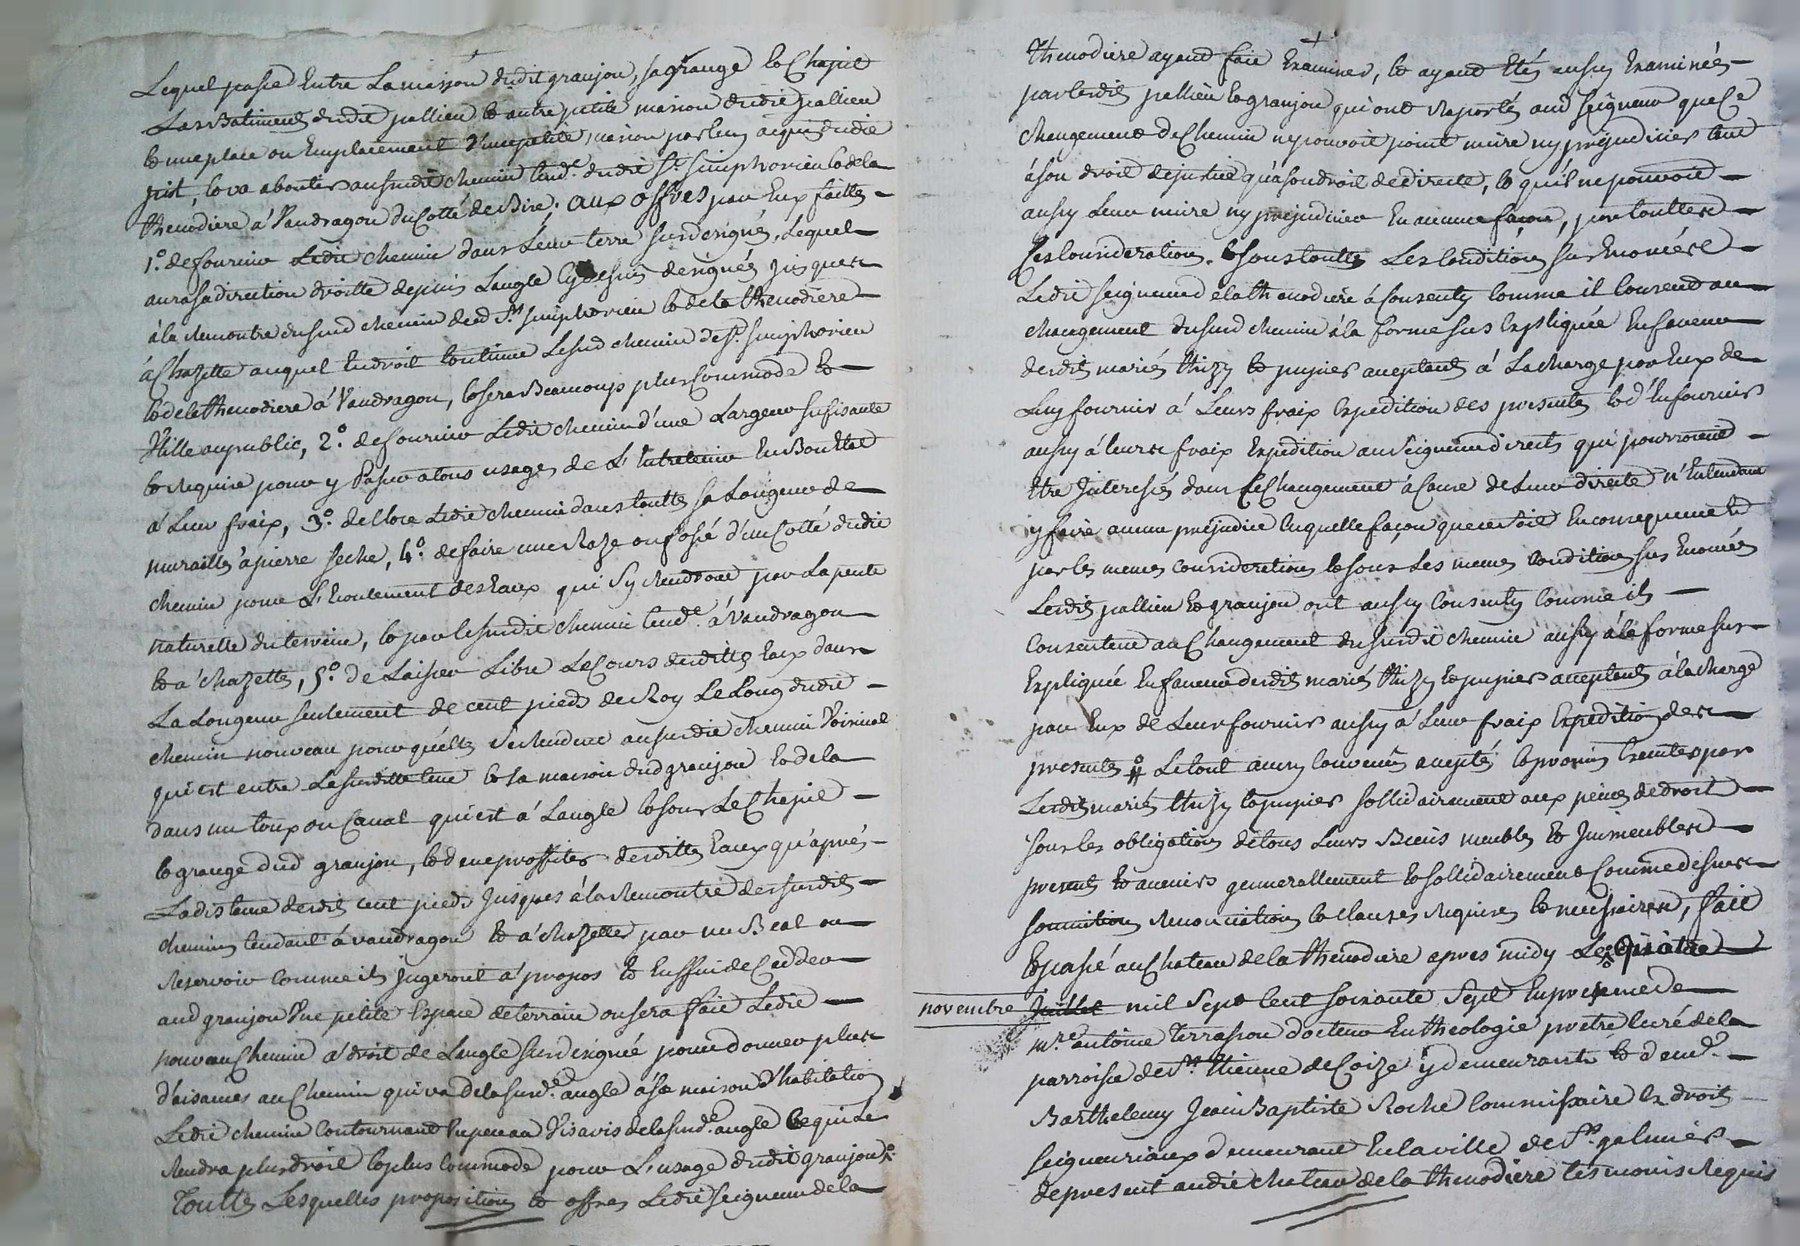 Lequel passe Entre La maison dudit granjon, sa grange le Chapit
Les Batiments dudit pallien et autre petite maison dudit pallien
et une place ou Emplacement d'une petite maison par luy acquis dudit
pit, et va aboutir au susdit chemin tend.t dudit St. simphorien et de la
thenodiere à Vaudragon du Cotté de Bize; aux offres par Eux faittes
1.° de fournir Ledit chemin dans Leur terre sus designée, Lequel
aura sa direction droitte depuis L'angle cy dessus designés jusques
à la Rencontre du susd chemin dud St. simphorien et de la thenodiere
à Chazette auquel Endroit continue Lesusd chemin de St. simphorien
et de la thenodiere à Vaudragon, et sera Beaucoup plus Commode et
Utille au public, 2.° de fournir Ledit chemin d'une Largeur sufisante
et Requise pour y Passer a tous usages de L'Entretenir En Bon Etat
à Leur fraix, 3.° de Clore Ledit chemin dans toutte sa Longueur de
murailles à pierre seche, 4.° de faire une Raze ou fossé d'un Cotté dudit
chemin pour L'Ecoulement des Eaux qui s'y Rendront par La pente
naturelle du terrein, et par le susdit chemin tend.t à Vaudragon
et à Chazette, 5.° de Laisser Libre Le Cours desdittes Eaux dans
La Longueur seulement de cent pieds de Roy Le Long dudit
chemin nouveau pour qu'elles se Rendent au susdit chemin Voisinal
qui est entre Lesusditte terre et la maison dud granjon et de la
dans un toup ou Canal qui est à L'angle et sous Le Chapit
et grange dud granjon, et de ne proffiter desdittes Eaux qu'aprés
La distance desdits cent pieds jusques à la Rencontre des susdits
chemins tendant à Vaudragon et à Chazette par un Beal ou
Reservoir comme ils jugeront à propos et Enffin de Ceder
aud granjon Une petite Espace de terrain ou sera fait Ledit
nouveau Chemin à droit de L'angle sus designée pour donner plus
d'aisances au Chemin qui va de la susd.e angle à sa maison d'habitation
Ledit chemin Contournant Un peu au Vis avis de la susd.e angle Ce qui Le
Rendra plus droit et plus Commode pour L'usage dudit granjon
Touttes Lesquelles propositions et offres Ledit seigneur de la
thenodiere ayant fait Examiner, et ayant Etés aussy Examinées
par lesdits pallien et granjon qui ont Raportés aud seigneur que Ce
changement de Chemin ne pouvoit point nuire ny prejudicier tant
à son droit de justice qu'a son droit de directe, et qu'il ne pouvoit
aussy Leur nuire ny prejudicier En aucune façon, par touttes
Ces Considerations, et sous touttes Les Conditions sus Enoncées
Ledit seigneur de la thenodiere à Consenty Comme il Consent au
changement du susd chemin à la forme sus Expliquée En faveur
desdits mariés thizy et pupier acceptants à La charge par Eux de
Luy fournir à Leurs fraix Expedition des presentes et d'En fournir
aussy à leurs fraix Expedition aux seigneurs directs qui pourroient
Etre Interessés dans Ce Changement à Cause de Leur directe n'Entendant
y faire aucun prejudice En quelle façon que ce soit En consequence et
par les memes considerations et sous Les memes Conditions sus Enoncées
Lesdits pallien et granjon ont aussy Consenty Comme ils
Consentent au Changement du susdit chemin aussy à la forme sus
Expliquée En faveur desdits mariés thizy et pupier acceptants à la charge
par Eux de Leur fournir aussy à Leur fraix Expedition des
presentes Le tout ainsy Convenu accepté et promis traitter par
Lesdits mariés thizy et pupier sollidairement aux peines de droit
sous les obligations de tous Leurs Biens meubles et Immeubles
presents et avenirs generallement et sollidairement Comme dessus
soumitions Renonciations et Clauses Requises et necessaires, fait
et passé au Chateau de la thenodiere apres midy Le quatre
novembre juillet mil sept Cent soixante sept En presence de
m.re antoine terrasson docteur En theologie pretre curé de la
parroisse de St. Etienne de Coize y demeurant et de m.e
Barthelemy Jean Baptiste Roche Commissaire En droits
seigneuriaux demeurant En la ville de St. galmier
de present audit chateau de la thenodiere temoins Requis